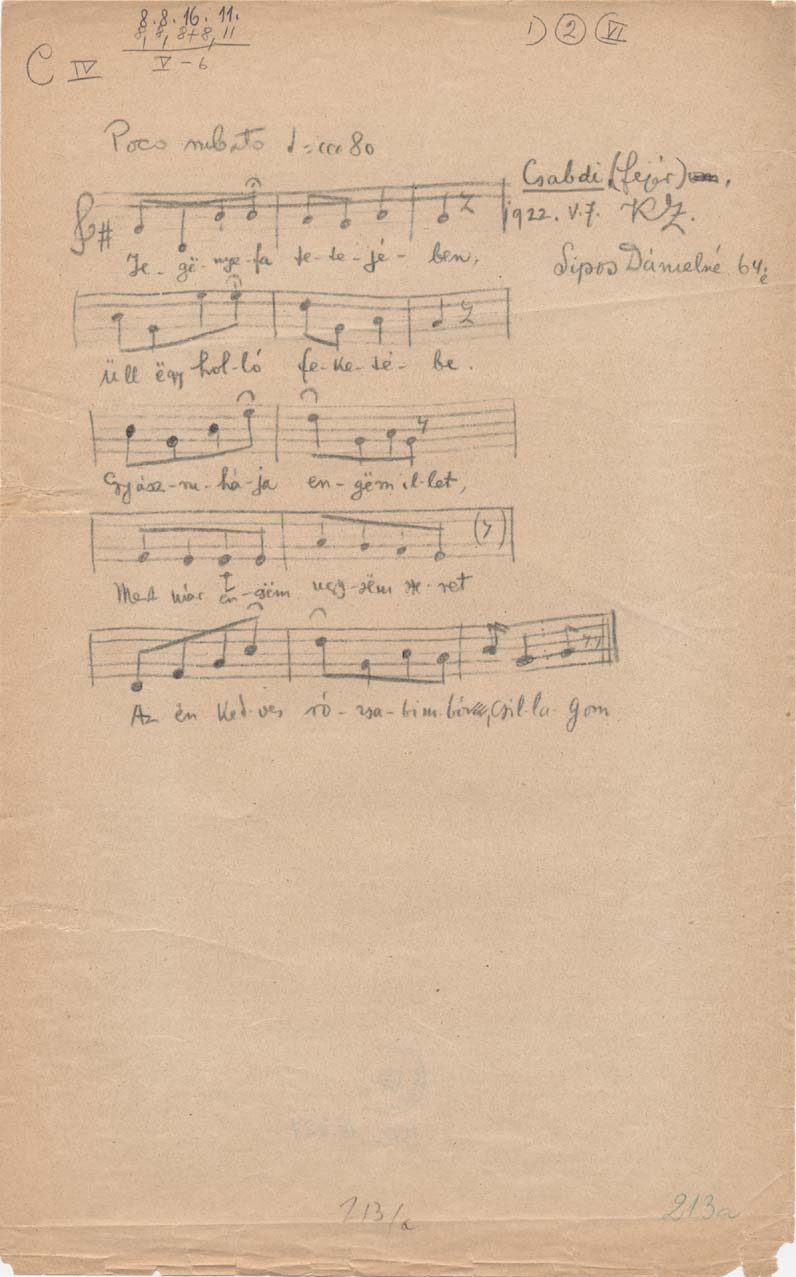 8. 8. 16. 11.
8, 8, 8+8, 11
V - 6
C IV
1) 2 VI
Poco rubato = ccc 80
Csabdi (Fejér)
1922. V. 7. KZ.
Sipos Dánielné 64 é
Je - gë - nye - fa te - te - jé - ben,
Üll ëgy hol - ló fe - ke - té - be.
Gyász - ru - há - ja en - gëm il - let,
Mert már en - gëm ugy - sëm sze - ret
Az én ked - ves ró - zsa - bim - bóm, Csil - la - gom
213/a
213a